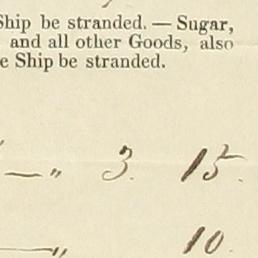 Ship be stranded. — Sugar,
and all other Goods, also
e Ship be stranded.
— " 3. 15.
— " 10.